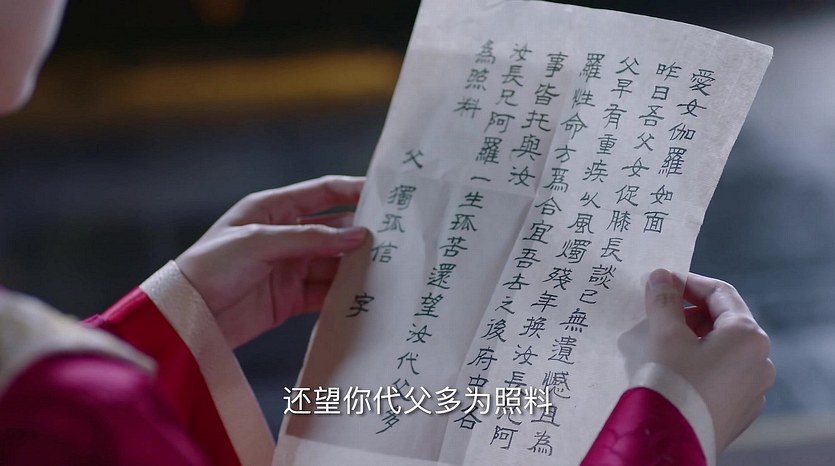 愛女伽羅如面
昨日吾父女促膝長談已無遺憾且為
父早有重疾以風燭殘年換汝長兄阿
羅性命方為合宜吾去之後府中各
事皆托與汝
汝長兄阿羅一生孤苦還望汝代父多
為照料
父獨孤信 字
还望你代父多为照料